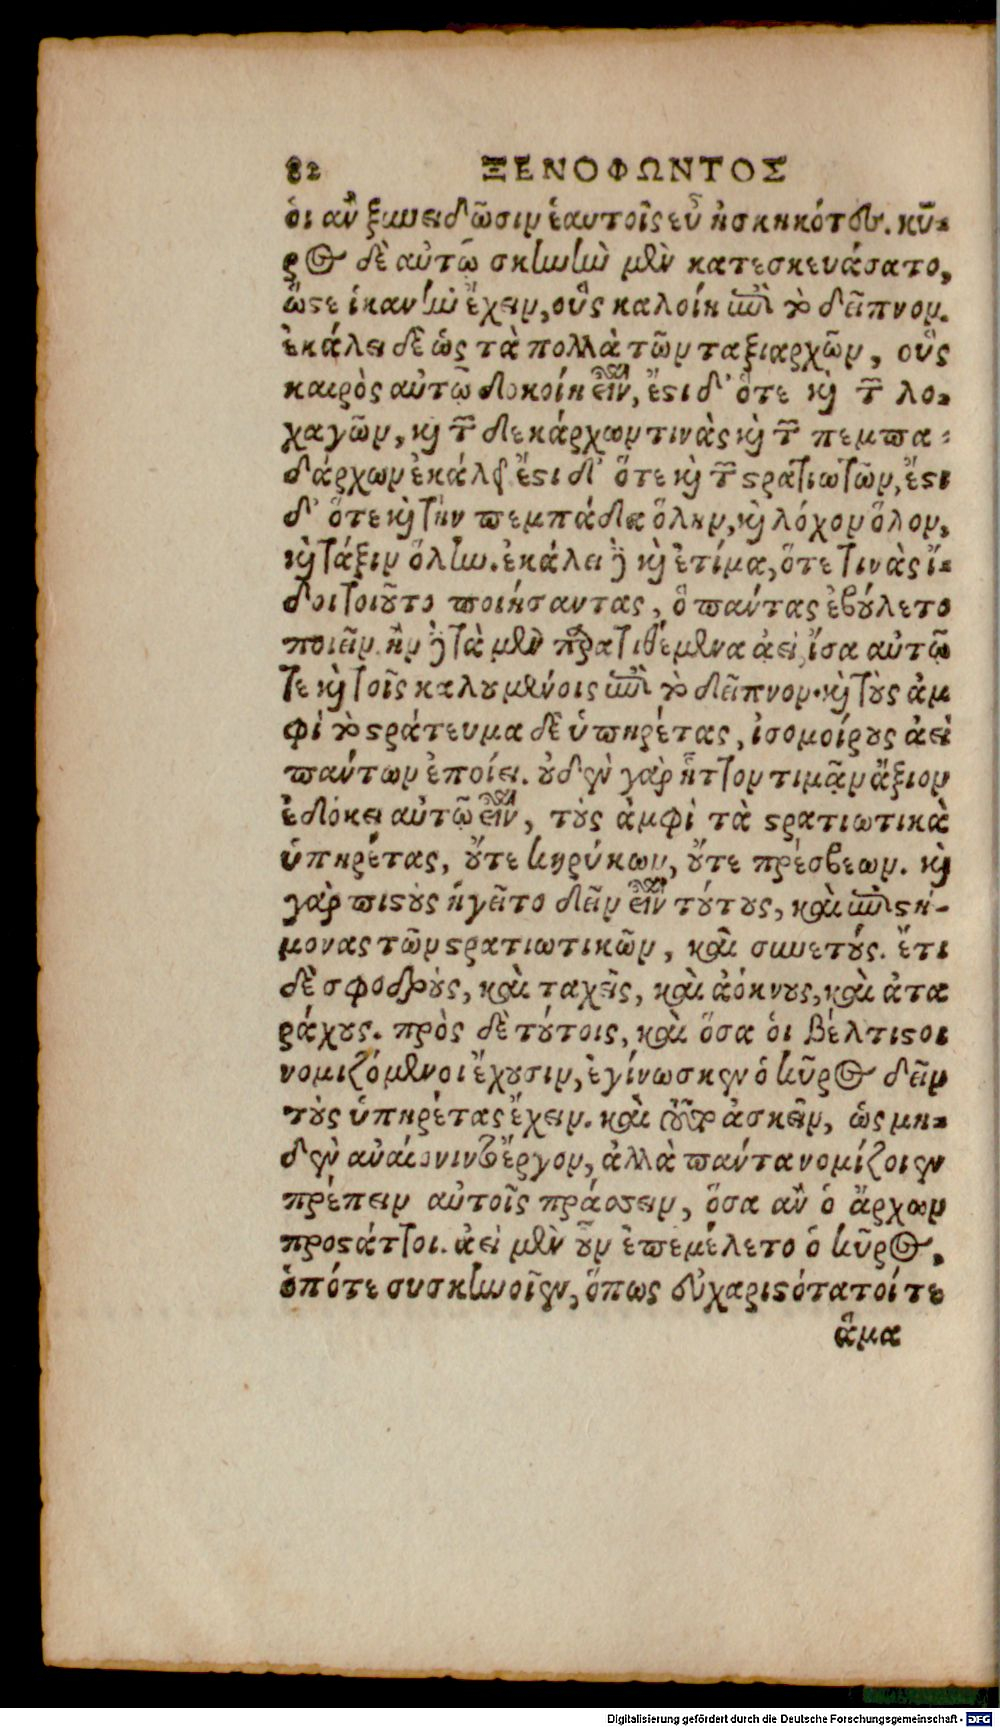 82 ΞΕΝΟΦΩΝΤΟΣ
οἱ ἂν ξυνειδῶσιν ἑαυτοῖς εὖ ἠσκηκότες. κῦ-
ρος δὲ αὑτῷ σκηνὴν μὲν κατεσκευάσατο,
ὥστε ἱκανὴν ἔχειν, οὓς καλοίη ἐπὶ τὸ δεῖπνον.
ἐκάλει δὲ ὡς τὰ πολλὰ τῶν ταξιαρχῶν, οὓς
καιρὸς αὐτῷ δοκοίη εἶναι, ἔστι δ' ὅτε καὶ τῶν λο-
χαγῶν, καὶ τῶν δεκάρχων τινὰς καὶ τῶν πεμπα-
δάρχων ἐκάλει ἔστι δ' ὅτε καὶ τῶν στρατιωτῶν, ἔστι
δ' ὅτε καὶ τὴν πεμπάδα ὅλην, καὶ λόχον ὅλον,
καὶ τάξιν ὅλην. ἐκάλει δὲ καὶ ἐτίμα, ὅτε τινὰς ἴ-
δοι τοιοῦτο ποιήσαντας, ὃ πάντας ἐβούλετο
ποιεῖν. ἦν δὲ τὰ μὲν παρατιθέμενα ἀεὶ ἴσα αὐτῷ
τε καὶ τοῖς καλουμένοις ἐπὶ τὸ δεῖπνον. καὶ τοὺς ἀμ
φὶ τὸ στράτευμα δὲ ὑπηρέτας, ἰσομοίρους ἀεὶ
πάντων ἐποίει. οὐδὲν γὰρ ἧττον τιμᾷν ἄξιον
ἐδόκει αὐτῷ εἶναι, τοὺς ἀμφὶ τὰ στρατιωτικὰ
ὑπηρέτας, οὔτε κηρύκων, οὔτε πρέσβεων. καὶ
γὰρ πιστοὺς ἡγεῖτο δεῖν εἶναι τούτους, καὶ ἐπιστή-
μονας τῶν στρατιωτικῶν, καὶ συνετούς. ἔτι
δὲ σφοδροὺς, καὶ ταχεῖς, καὶ ἀόκνους, καὶ ἀτα
ράχους. πρὸς δὲ τούτοις, καὶ ὅσα οἱ βέλτιστοι
νομιζόμενοι ἔχουσιν, ἐγίνωσκεν ὁ κῦρος δεῖν
τοὺς ὑπηρέτας ἔχειν. καὶ τοῦτο ἀσκεῖν, ὡς μη-
δὲν ἀναίνοιντο ἔργον, ἀλλὰ πάντα νομίζοιεν
πρέπειν αὐτοῖς πράσσειν, ὅσα ἂν ὁ ἄρχων
προστάττοι. ἀεὶ μὲν οὖν ἐπεμέλετο ὁ κῦρος,
ὁπότε συσκηνοῖεν, ὅπως εὐχαριστότατοί τε
ἅμα
Digitalisierung gefördert durch die Deutsche Forschungsgemeinschaft - DFG